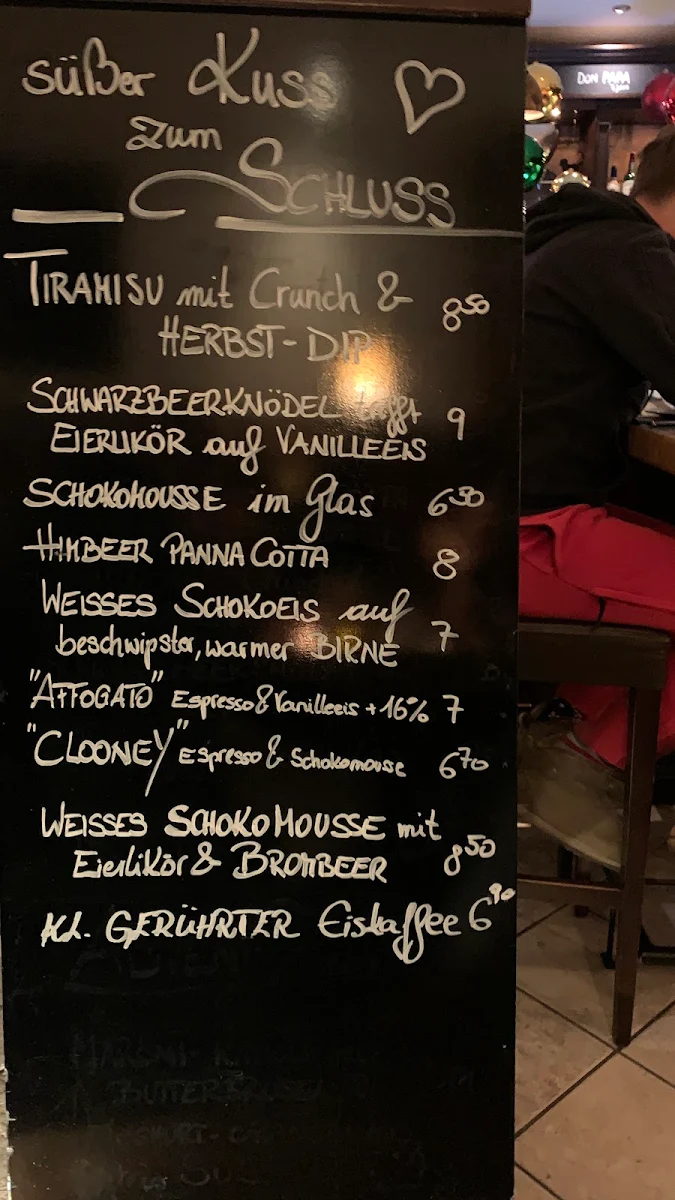 süßer Kuss
zum
SCHLUSS
TIRAMISU mit Crunch & 8⁵⁰
HERBST-DIP
SCHWARZBEERKNÖDEL trifft 9
EIERLIKÖR auf VANILLEEIS
SCHOKOMOUSSE im Glas 6⁵⁰
HIMBEER PANNA COTTA 8
WEISSES SCHOKOEIS auf
beschwipster, warmer BIRNE 7
"AFFOGATO" Espresso & Vanilleeis + 16% 7
"CLOONEY" Espresso & Schokomousse 6⁷⁰
WEISSES SCHOKOMOUSSE mit
Eierlikör & BROMBEER 8⁵⁰
KL. GERÜHRTER Eiskaffee 6⁹⁰
DON PAPA